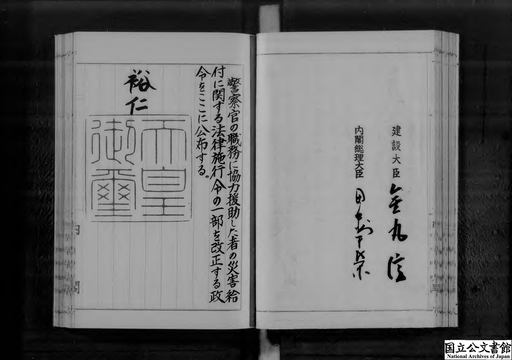 建設大臣
金丸信
内閣総理大臣
田中角榮
警察官の職務に協力援助した者の災害給
付に関する法律施行令の一部を改正する政
令をここに公布する。
裕仁
天皇
御璽
国立公文書館
National Archives of Japan